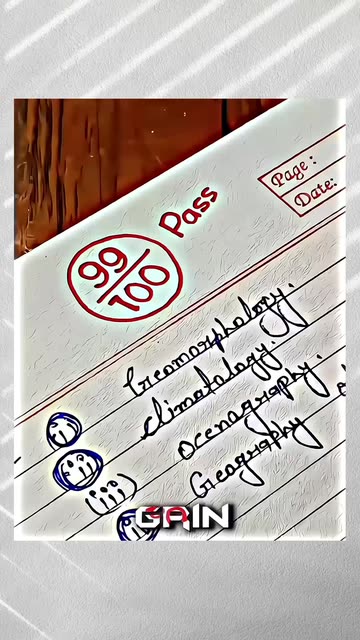 Page :
Date:
99/100
Pass
(i) Greomorphology.
(ii) climatology.
(iii) ocenography.
Greography
GAIN